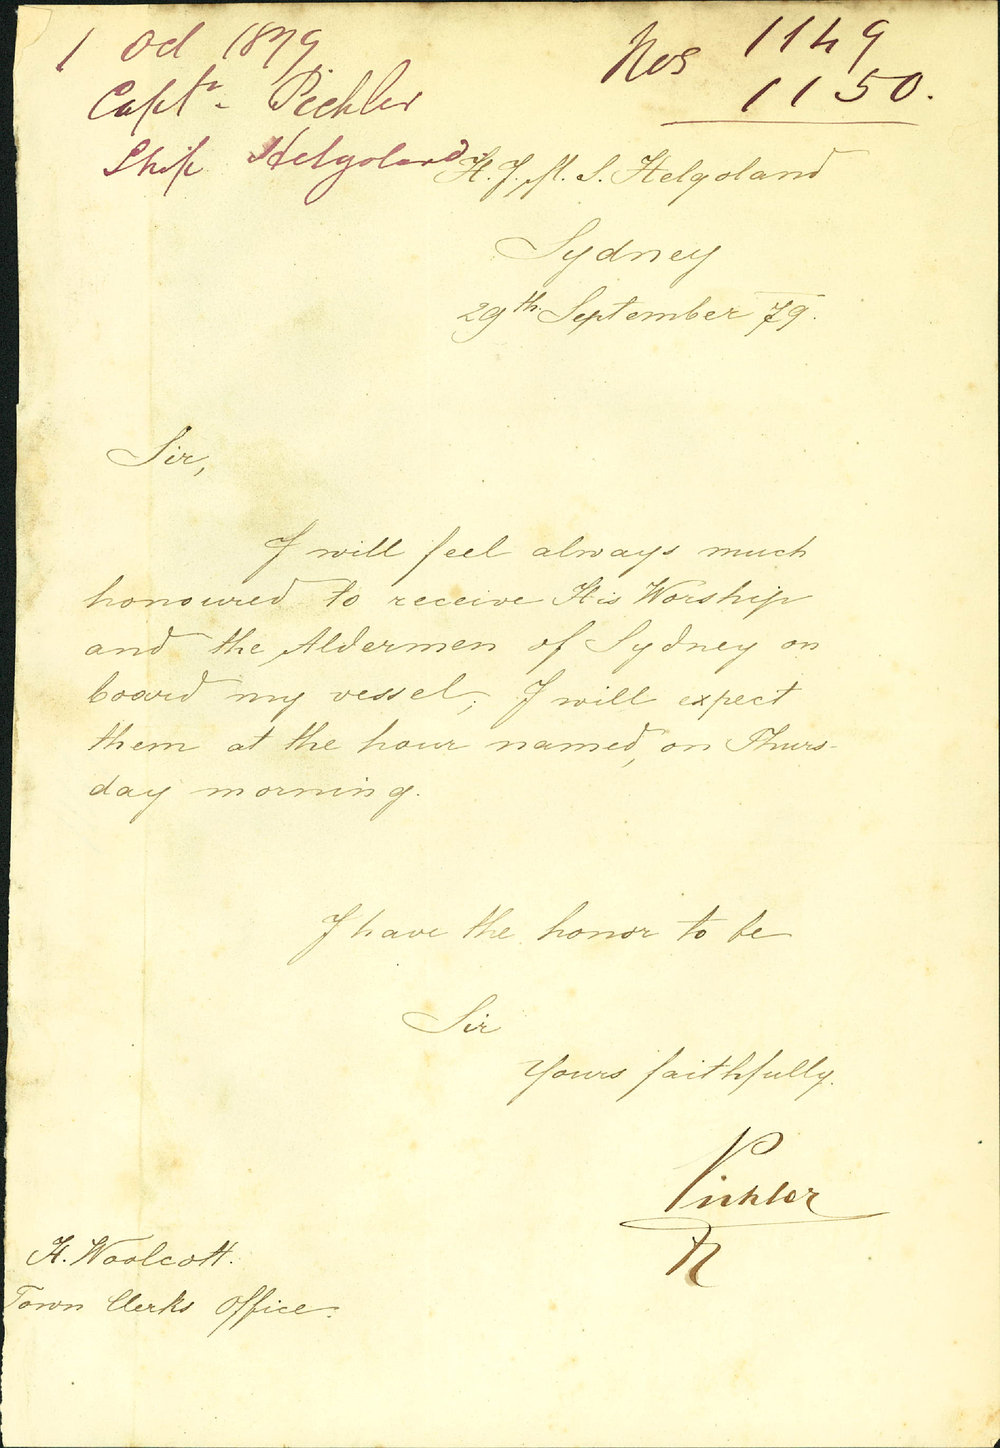 1 Oct 1879
Captn. Pichler
Ship Helgoland
Nos 1149
1150.
H. I. M. S. Helgoland
Sydney
29th September 79.
Sir,
I will feel always much
honoured to receive His Worship
and the Aldermen of Sydney on
board my vessel; I will expect
them at the hour named, on Thurs-
day morning.
I have the honor to be
Sir
Yours faithfully.
Pichler
H. Woolcott.
Town Clerks Office.